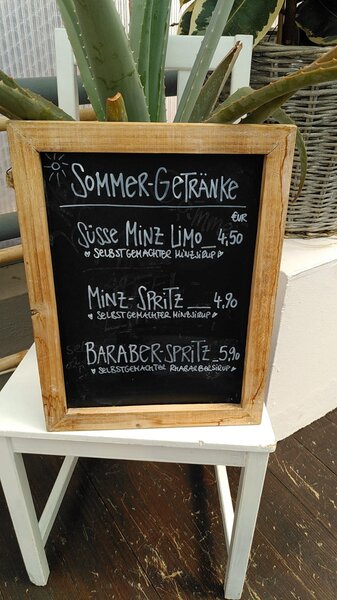 SOMMER-GETRÄNKE
EUR
SÜSSE MINZ LIMO_4,50
♥ SELBSTGEMACHTER MINZSIRUP ♥
MINZ-SPRITZ __ 4,90
♥ SELBSTGEMACHTER MINZSIRUP ♥
BARABER-SPRITZ_5,90
♥ SELBSTGEMACHTER RHABARBERSIRUP ♥